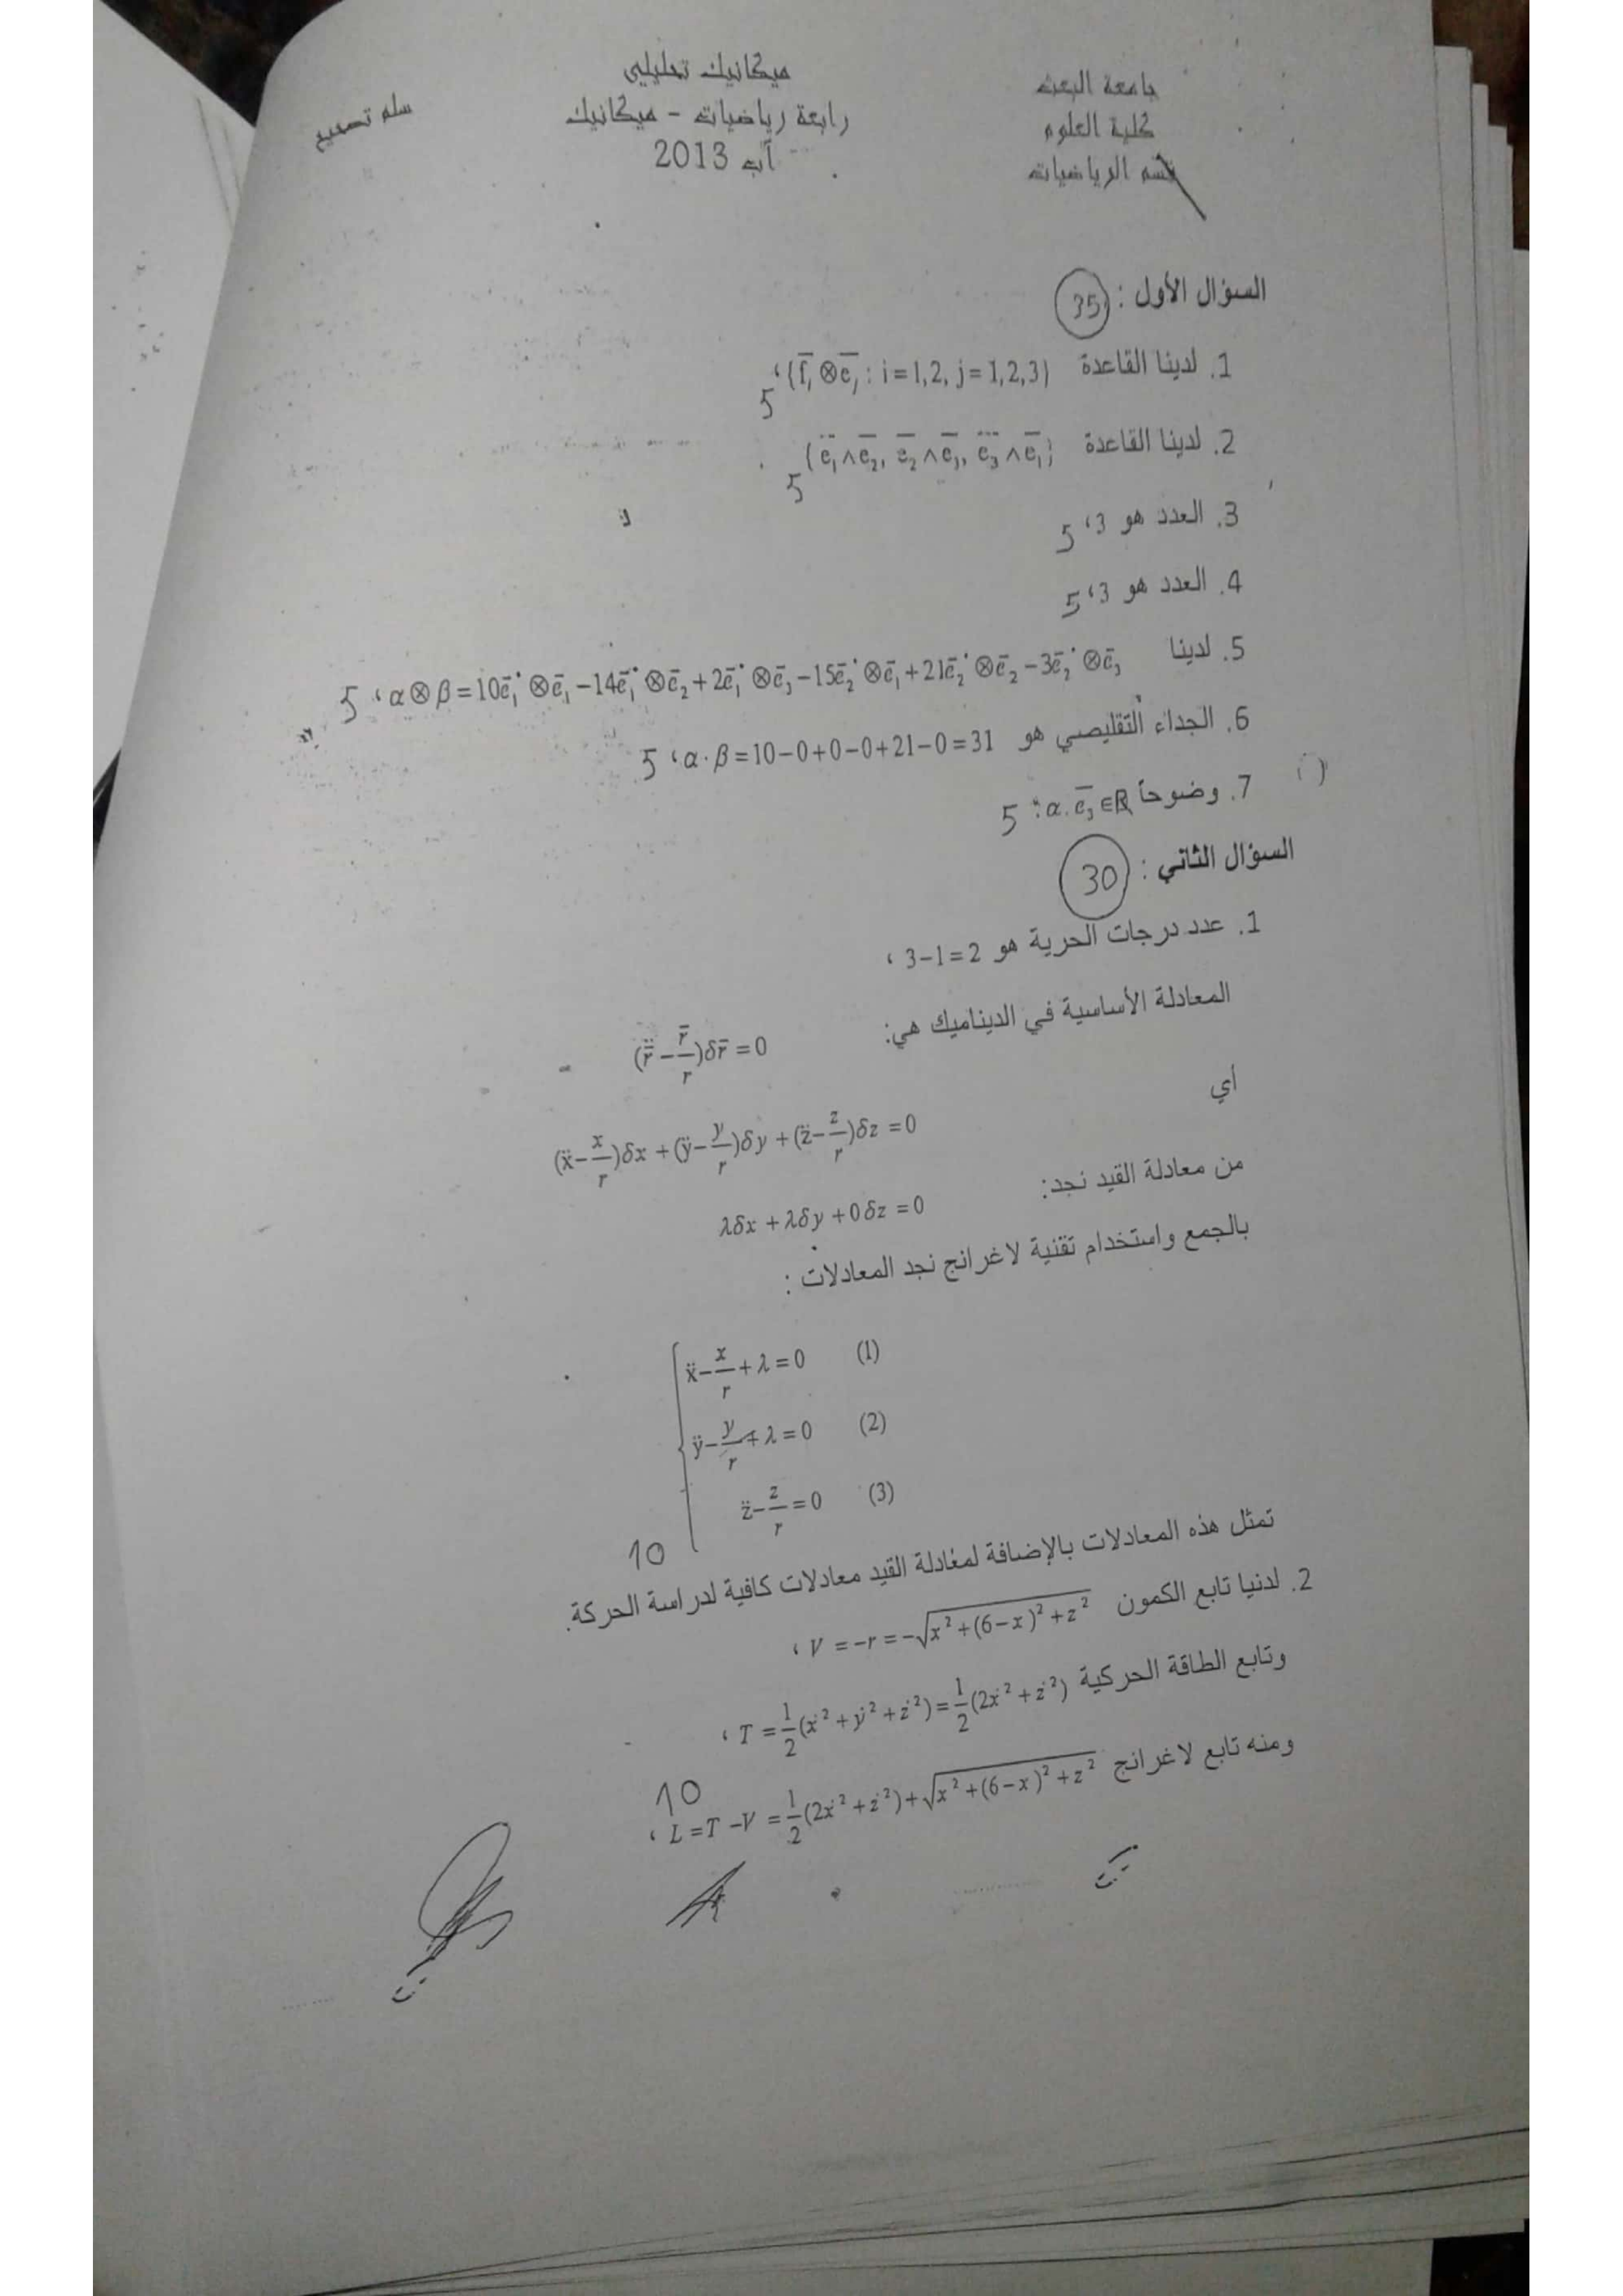 جامعة البعث
كلية العلوم
قسم الرياضيات
ميكانيك تحليلي
رابعة رياضيات - ميكانيك
آب 2013
سلم تصحيح
السؤال الأول : 35
1. لدينا القاعدة {f̄ᵢ ⊗ēⱼ : i = 1,2, j = 1,2,3}، 5
2. لدينا القاعدة {ē₁ ∧ ē₂, ē₂ ∧ ē₃, ē₃ ∧ ē₁} 5
3. العدد هو 3، 5
4. العدد هو 3، 5
5. لدينا α ⊗ β = 10ē₁* ⊗ ē₁ − 14ē₁* ⊗ ē₂ + 2ē₁* ⊗ ē₃ − 15ē₂* ⊗ ē₁ + 21ē₂* ⊗ ē₂ − 3ē₂* ⊗ ē₃ ، 5
6. الجداء التقليصي هو α · β = 10 − 0 + 0 − 0 + 21 − 0 = 31 ، 5
7. وضوحاً α . ē₃ ∈ ℝ ، 5
السؤال الثاني : 30
1. عدد درجات الحرية هو 3 − 1 = 2 ،
المعادلة الأساسية في الديناميك هي: (r̄̈ − r̄/r)δr̄ = 0
أي
(ẍ − x/r)δx + (ÿ − y/r)δy + (z̈ − z/r)δz = 0
من معادلة القيد نجد: λδx + λδy + 0δz = 0
بالجمع واستخدام تقنية لاغرانج نجد المعادلات :
ẍ − x/r + λ = 0 (1)
ÿ − y/r + λ = 0 (2)
z̈ − z/r = 0 (3)
10
تمثل هذه المعادلات بالإضافة لمعادلة القيد معادلات كافية لدراسة الحركة.
2. لدنيا تابع الكمون V = −r = −√(x² + (6 − x)² + z²) ،
وتابع الطاقة الحركية T = 1/2(ẋ² + ẏ² + ż²) = 1/2(2ẋ² + ż²) ،
ومنه تابع لاغرانج L = T − V = 1/2(2ẋ² + ż²) + √(x² + (6 − x)² + z²) ، 10